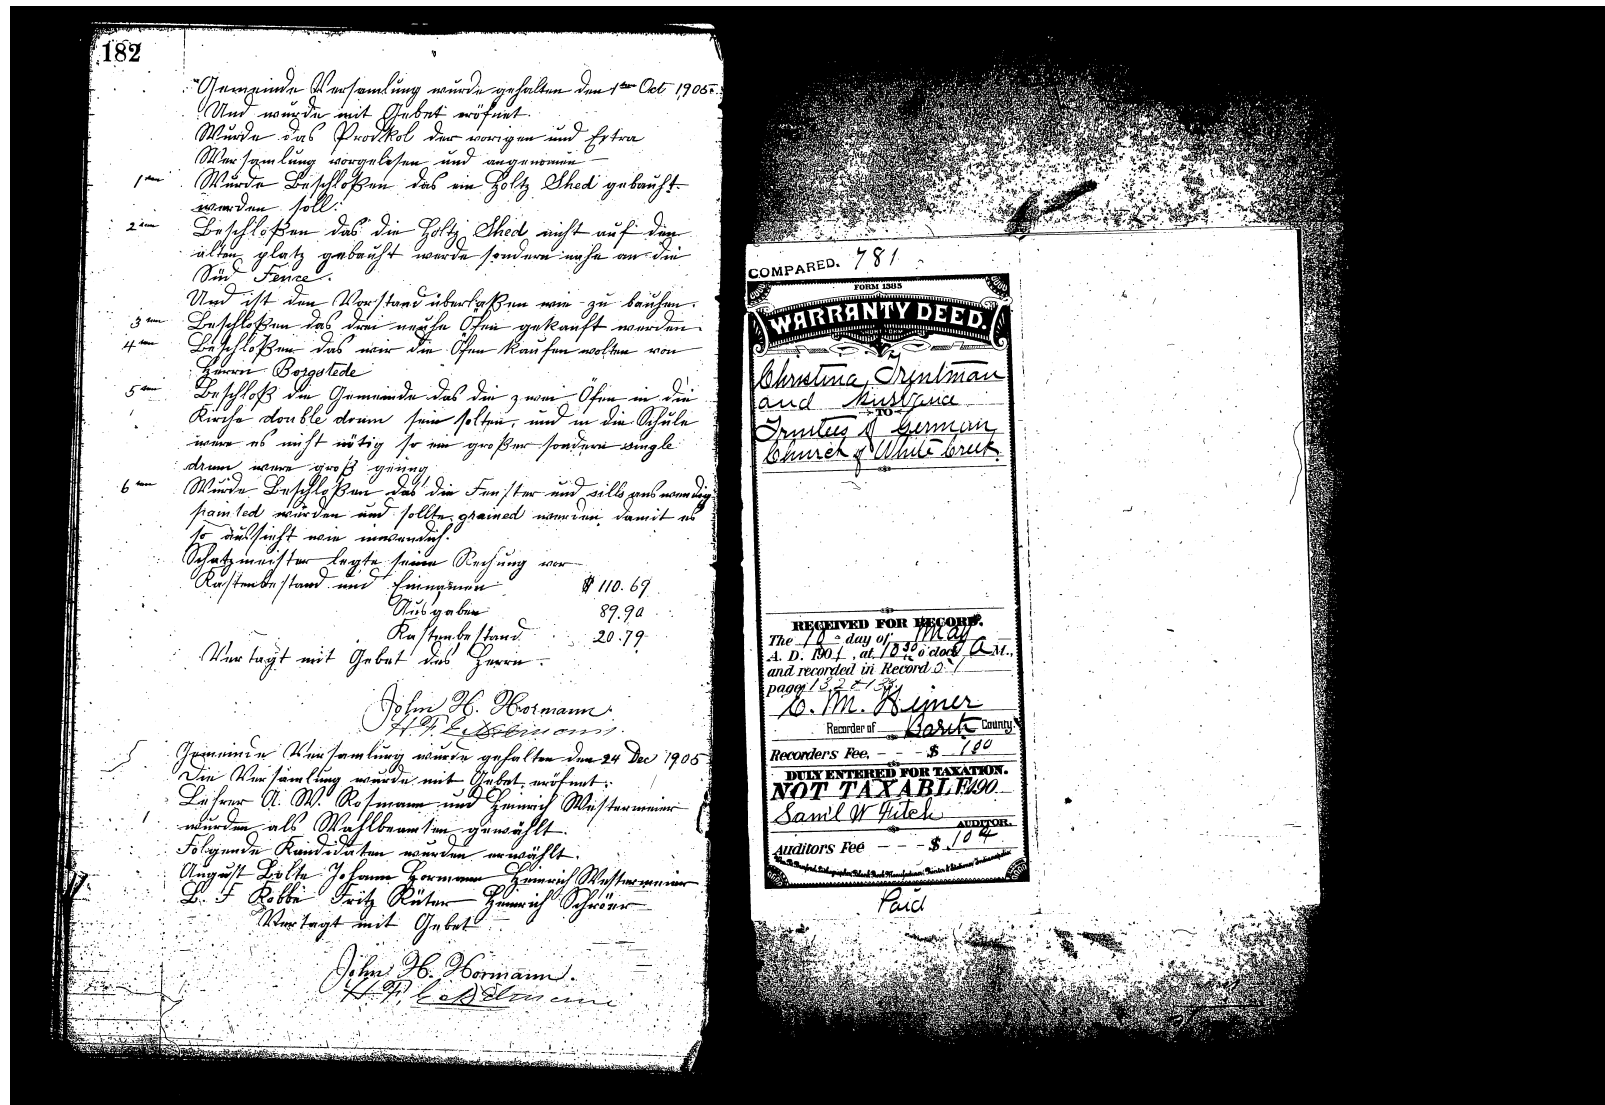 182
Gemeinde Versamlung wurde gehalten den 1ten Oct 1905.
Und wurde mit Gebet eröfnet
Wurde das Prodkol der vorigen und Extra
Versamlung vorgelesen und angenomen
1ten Wurde Beschloßen das ein Holtz Shed gebauht
werden soll.
2ten Beschloßen das die Holtz Shed nicht auf den
alten platz gebauht werde sondern nahe an die
Süd Fence.
Und ist den Vorstand überlaßen wie zu bauhen.
3ten Beschloßen das drei neuhe Öfen gekauft werden
4ten Beschloßen das wir die Öfen kaufen wolten von
Herrn Borgstede
5ten Beschloß die Gemeinde das die zwei Öfen in die
Kirche double drum sein solten, und in die Schule
were es nicht nötig so ein großer sondern single
drum were groß genug
6ten Wurde Beschloßen das die Fenster und sills auswendig
painted würden und sollte grained werden damit es
so aussieht wie inwendich.
Schatzmeister legte seine Rechung vor
Kastenbestand und Einnamen $ 110.69
Ausgaben 89.90
Kastenbestand 20.79
Vertagt mit Gebet des Herrn.
John H. Hormann
Gemeinde Versamlung wurde gehalten den 24 Dec 1905
Die Versamlung wurde mit Gebet eröfnet.
Lehrer A. W. Rosmann und Heinrich Westermeier
wurden als Wahlbeamten gewählt.
Folgende Kandidaten wurden erwählt.
August Bolte Johann Hormann Heinrich Westermeier
B. F Kobbe Fritz Rüter Heinrich Schröer
Vertagt mit Gebet
John H. Hormann.
COMPARED. 781
FORM 1385
WARRANTY DEED.
SHORT FORM
Christina Trentman
and husband
TO
Trustees of German
Church of White Creek
RECEIVED FOR RECORD.
The 10 day of May
A. D. 1901, at 10 30 o'clock A M.,
and recorded in Record 31
page 132 & 133
C. M. Hejner
Recorder of Barth County.
Recorders Fee, - - - $ 1 00
DULY ENTERED FOR TAXATION.
NOT TAXABLE 190
Sam'l W Fitch
AUDITOR.
Auditors Fee - - - $ 10
Paid